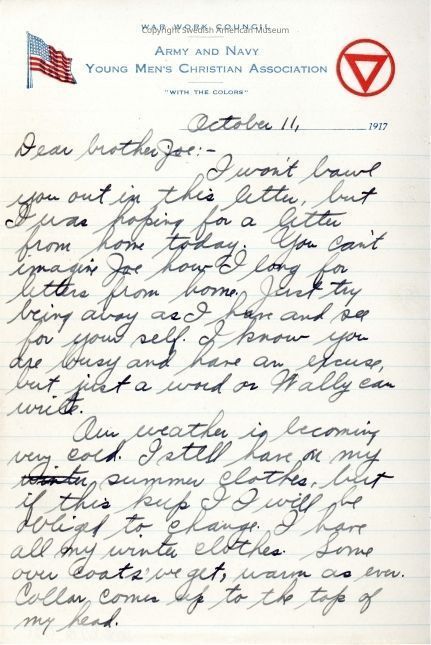 WAR WORK COUNCIL
Copyright Swedish American Museum
ARMY AND NAVY
YOUNG MEN'S CHRISTIAN ASSOCIATION
"WITH THE COLORS"
October 11, 1917
Dear brother Joe:-
I won't bawl
you out in this letter, but
I was hoping for a letter
from home today. You can't
imagine Joe how I long for
letters from home. Just try
being away as I have and see
for your self. I know you
are busy and have an excuse,
but just a word or Wally can
write.
Our weather is becoming
very cold. I still have on my
winter summer clothes, but
if this keep I I will be
obliged to change. I have
all my winter clothes. Some
over coats we get, warm as ever.
Collar comes up to the top of
my head.